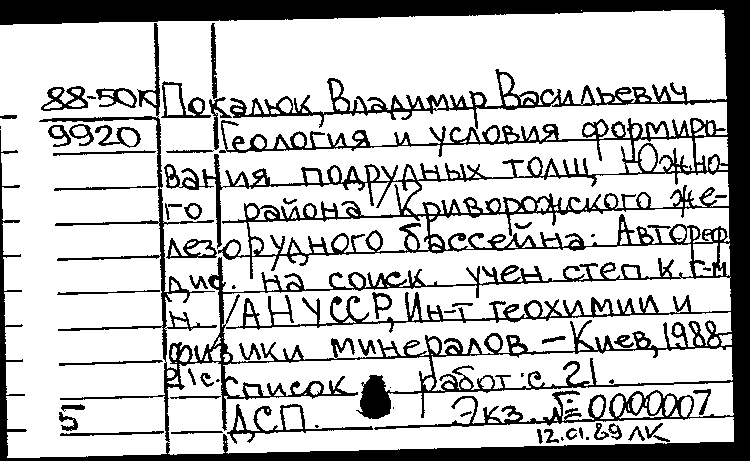 88-50К Покалюк, Владимир Васильевич
9920 Геология и условия формиро-
вания подрудных толщ Южно-
го района Криворожского же-
лезорудного бассейна: Автореф.
дис. на соиск. учен. степ. к. г-м
н. /АН УССР, Ин-т геохимии и
физики минералов. – Киев, 1988.
21с. список работ: с. 21.
5 ДСП. Экз. № 0000007
12.01.89 ЛК